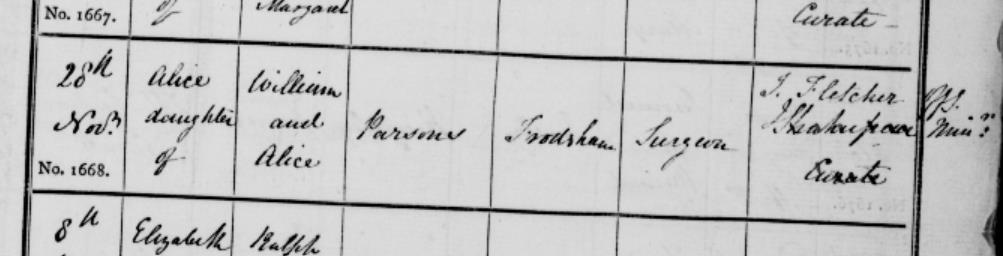 No. 1667.
of
Margaret
Curate
28th
Novr.
No. 1668.
Alice
daughter
of
William
and
Alice
Parsons
Frodsham
Surgeon
J. Fletcher
Curate
Offs.
Minr.
8th
Elizabeth
Ralph